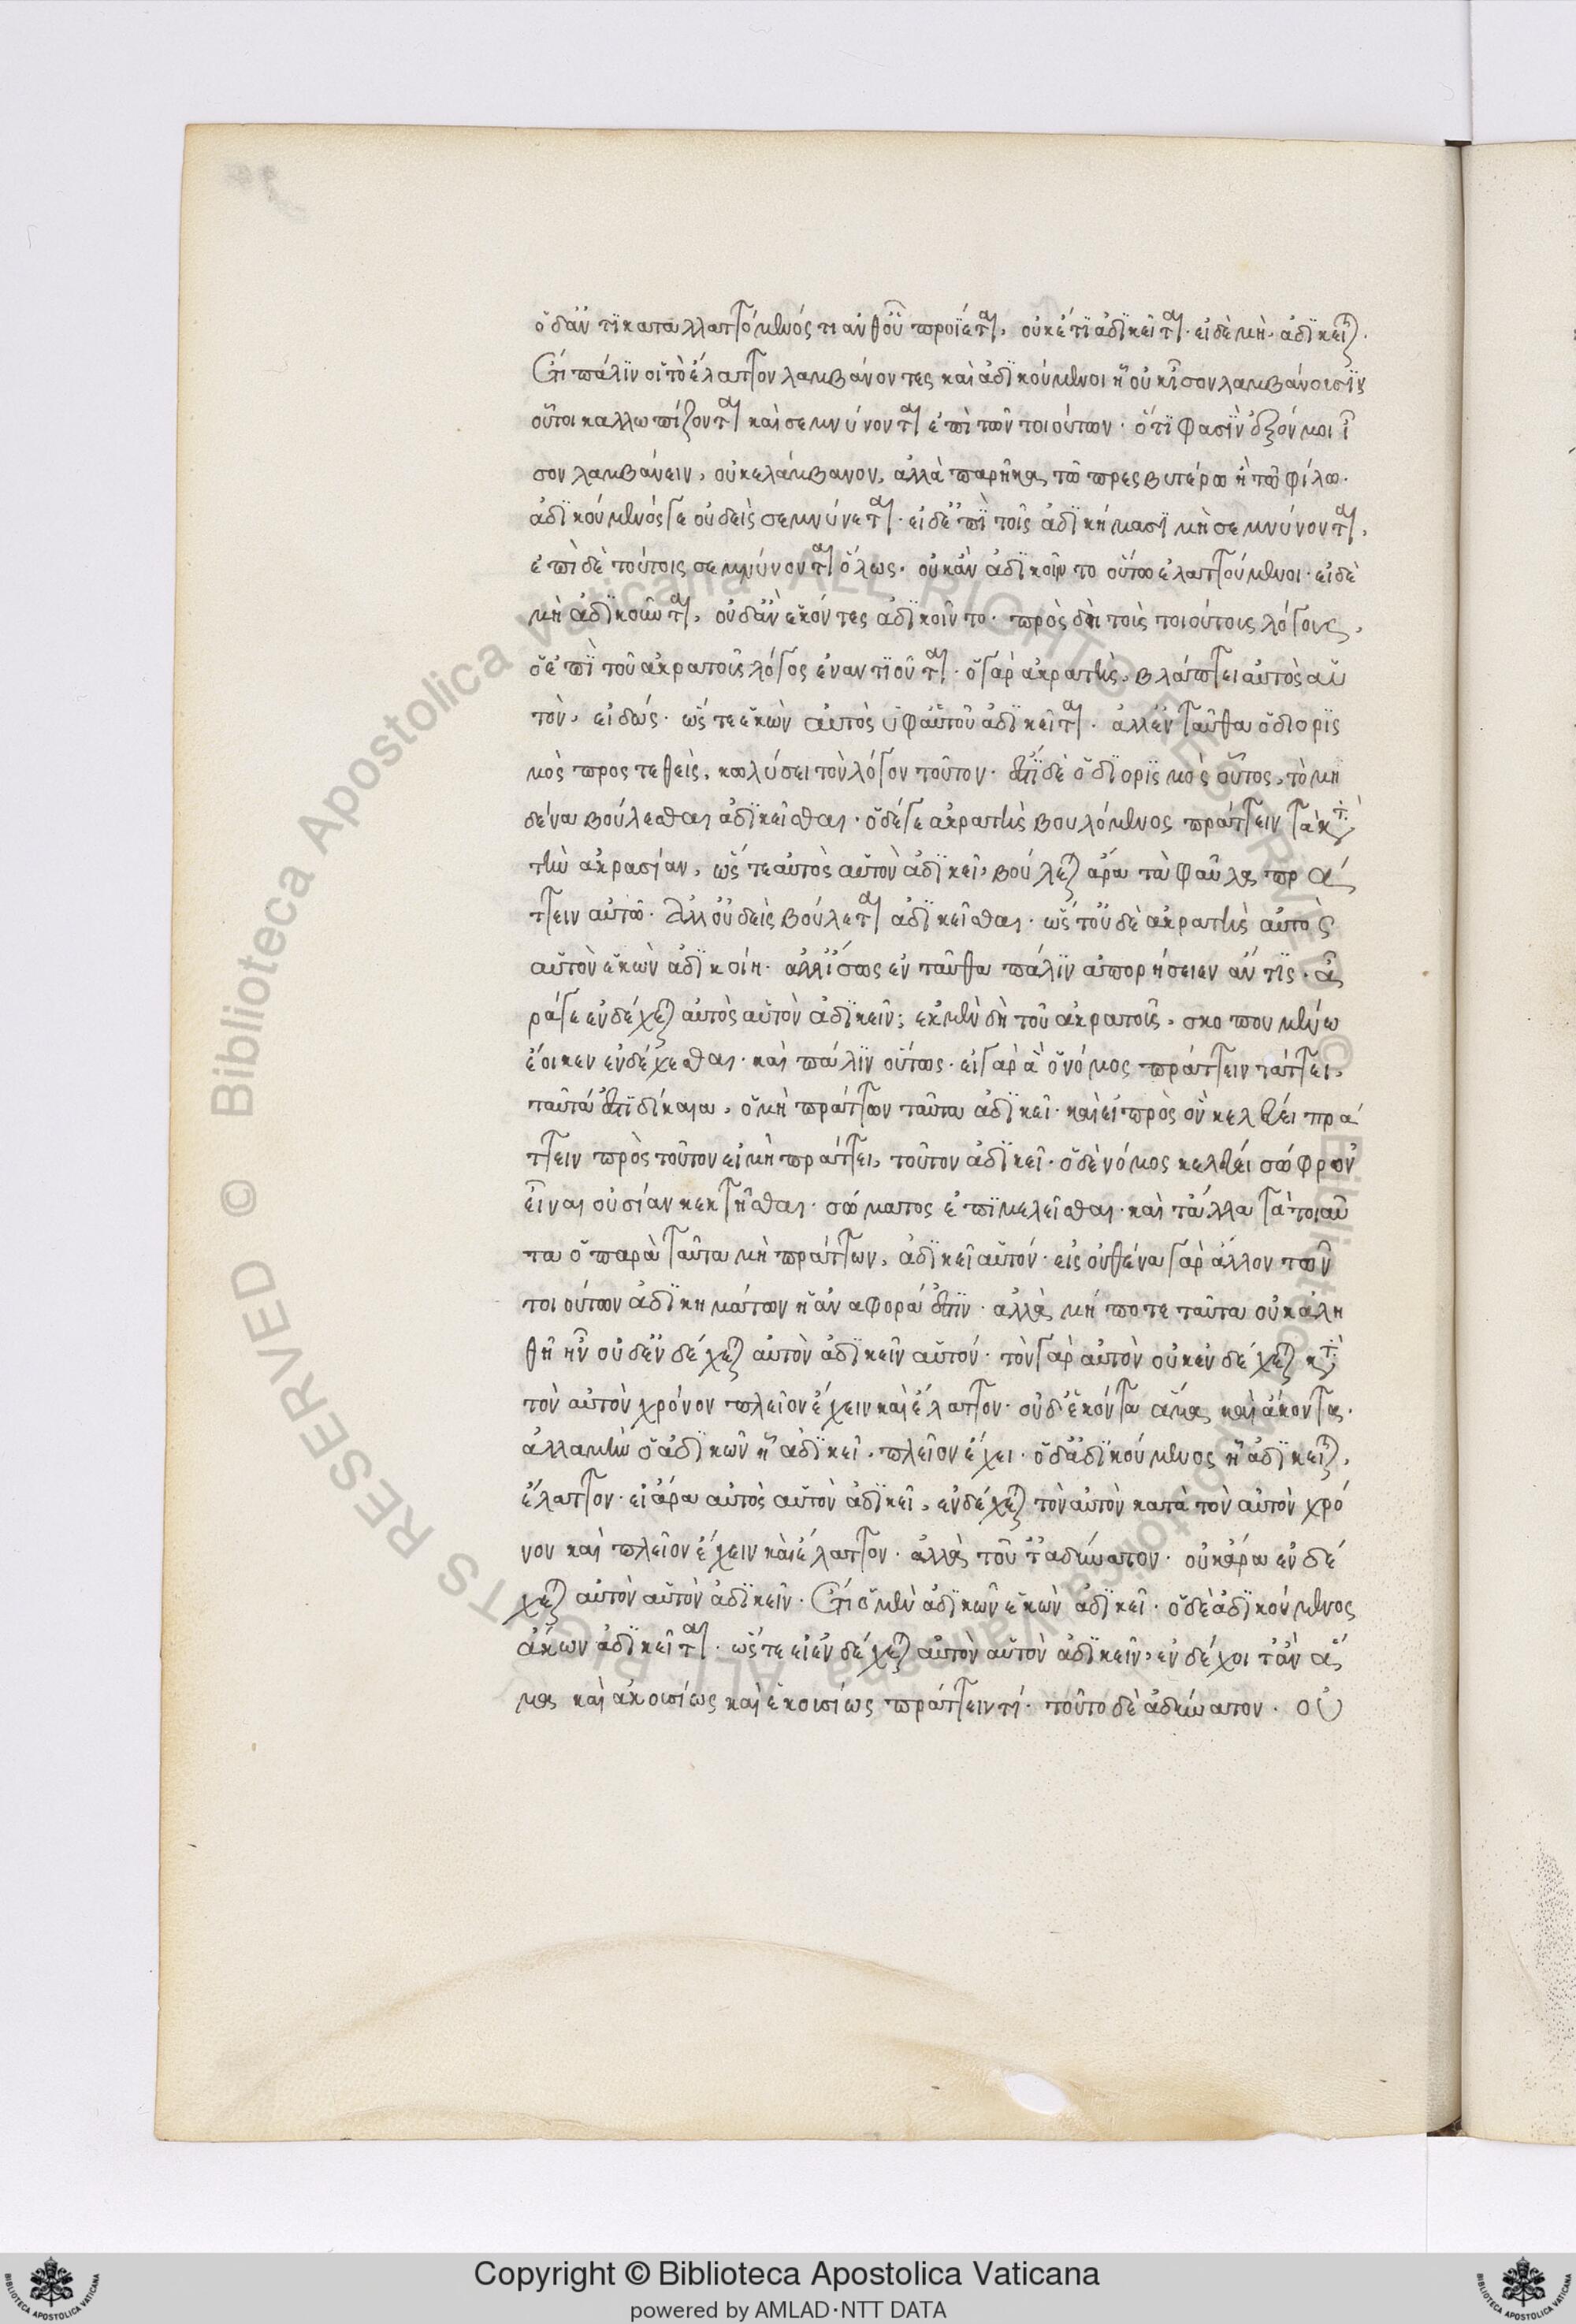 ὁ δ' ἄν τι καταλλαττόμενός τι ἀνθ' οὗ προΐεται, οὐκέτι ἀδικεῖται· εἰ δὲ μὴ, ἀδικεῖται.
Ἔτι πάλιν οἱ τὸ ἔλαττον λαμβάνοντες καὶ ἀδικούμενοι ᾗ οὐκ ἴσον λαμβάνουσιν
οὗτοι καλλωπίζονται καὶ σεμνύνονται ἐπὶ τῶν τοιούτων· ὅτι φασὶν ἐξόν μοι ἴ
σον λαμβάνειν, οὐκ ἐλάμβανον, ἀλλὰ παρῆκα τῷ πρεσβυτέρῳ ἢ τῷ φίλῳ.
ἀδικούμενός γε οὐδεὶς σεμνύνεται· εἰ δ' ἐπὶ τοῖς ἀδικήμασι μὴ σεμνύνονται,
ἐπὶ δὲ τούτοις σεμνύνονται ὅλως· οὐκ ἂν ἀδικοῖντο οὕτω ἐλαττούμενοι· εἰ δὲ
μὴ ἀδικοῦνται, οὐδ' ἂν ἑκόντες ἀδικοῖντο· πρὸς δὴ τοὺς τοιούτους λόγους,
ὁ ἐπὶ τοῦ ἀκρατοῦς λόγος ἐναντιοῦται· ὁ γὰρ ἀκρατὴς, βλάπτει αὐτὸς αὑ
τὸν, εἰδώς· ὥστε ἑκὼν αὐτὸς ὑφ' αὑτοῦ ἀδικεῖται· ἀλλ' ἐνταῦθα ὁ διορις
μὸς προστεθεὶς, κωλύσει τὸν λόγον τοῦτον· ἔστι δὲ ὁ διορισμὸς οὗτος, τὸ μη
δένα βούλεσθαι ἀδικεῖσθαι· ὁ δέ γε ἀκρατὴς βουλόμενος πράττειν τὰ κατὰ
τὴν ἀκρασίαν, ὥστε αὐτὸς αὑτὸν ἀδικεῖ, βούλεται ἄρα τὰ φαῦλα πρά
ττειν αὑτῷ· ἀλλ' οὐδεὶς βούλεται ἀδικεῖσθαι· ὥστ' οὐδὲ ἀκρατὴς αὐτὸς
αὑτὸν ἑκὼν ἀδικοίη· ἀλλ' ἴσως ἐνταῦθα πάλιν ἀπορήσειεν ἄν τις· ἆ
ρά γε ἐνδέχεται αὐτὸς αὑτὸν ἀδικεῖν; ἐκ μὲν δὴ τοῦ ἀκρατοῦς, σκοπουμένῳ
ἔοικεν ἐνδέχεσθαι· καὶ πάλιν οὕτως· εἰ γὰρ ἃ ὁ νόμος πράττειν τάττει,
ταῦτά ἐστι δίκαια, ὁ μὴ πράττων ταῦτα ἀδικεῖ· καὶ εἰ πρὸς ὃν κελεύει πρά
ττειν πρὸς τοῦτον εἰ μὴ πράττει, τοῦτον ἀδικεῖ· ὁ δὲ νόμος κελεύει σώφρον'
εἶναι οὐσίαν κεκτῆσθαι· σώματος ἐπιμελεῖσθαι· καὶ τἄλλα τὰ τοιαῦ
τα ὁ παρὰ ταῦτα μὴ πράττων, ἀδικεῖ αὑτόν· εἰς οὐθένα γὰρ ἄλλον τῶν
τοιούτων ἀδικημάτων ἡ ἀναφορά ἐστιν· ἀλλὰ μή ποτε ταῦτα οὐκ ἀλη
θῆ ἦν οὐδ' ἐνδέχεται αὐτὸν ἀδικεῖν αὑτόν· τὸν γὰρ αὐτὸν οὐκ ἐνδέχεται κατὰ
τὸν αὐτὸν χρόνον πλεῖον ἔχειν καὶ ἔλαττον· οὐδ' ἑκόντα ἅμα καὶ ἄκοντα.
ἀλλὰ μὴν ὁ ἀδικῶν ᾗ ἀδικεῖ, πλεῖον ἔχει· ὁ δ' ἀδικούμενος ᾗ ἀδικεῖται,
ἔλαττον· εἰ ἄρα αὐτὸς αὑτὸν ἀδικεῖ, ἐνδέχεται τὸν αὐτὸν κατὰ τὸν αὐτὸν χρό
νον καὶ πλεῖον ἔχειν καὶ ἔλαττον· ἀλλὰ τοῦτ' ἀδύνατον· οὐκ ἄρα ἐνδέ
χεται αὐτὸν αὑτὸν ἀδικεῖν· Ἔτι ὁ μὲν ἀδικῶν ἑκὼν ἀδικεῖ· ὁ δὲ ἀδικούμενος
ἄκων ἀδικεῖται· ὥστε εἰ ἐνδέχεται αὐτὸν αὑτὸν ἀδικεῖν, ἐνδέχοιτ' ἂν ἅ
μα καὶ ἀκουσίως καὶ ἑκουσίως πράττειν τί· τοῦτο δὲ ἀδύνατον· οὐ